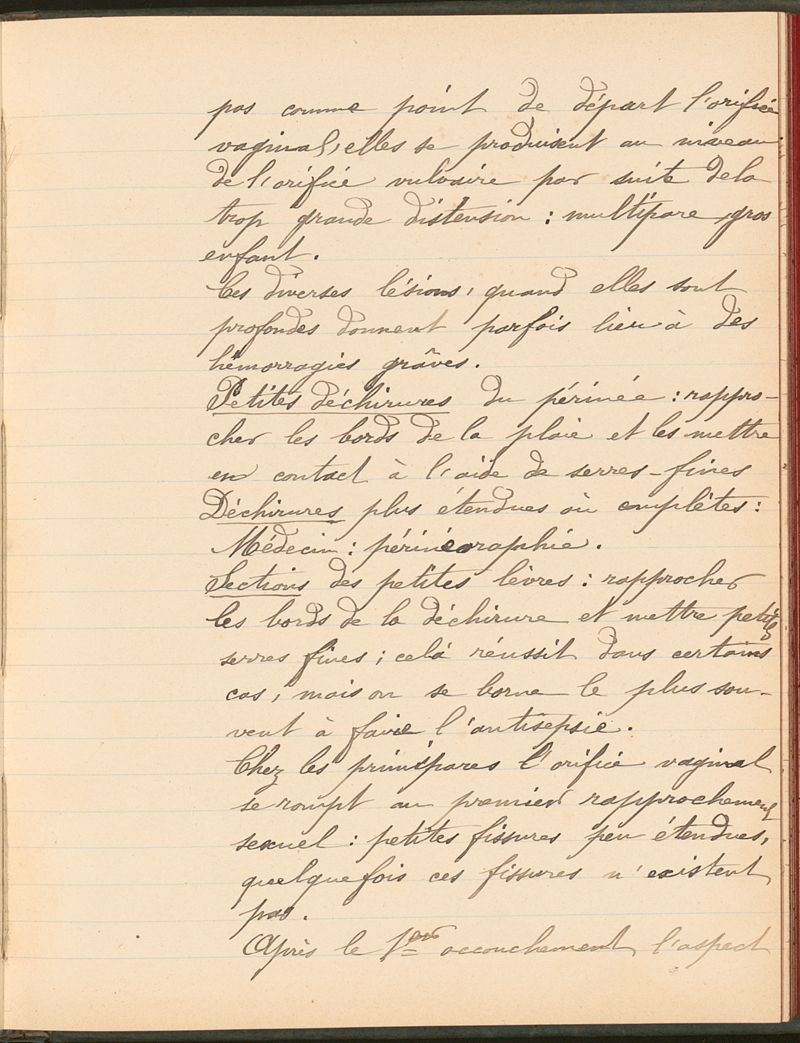 pas comme point de départ l'orifice
vaginal, elles se produisent au niveau
de l'orifice vulvaire par suite de la
trop grande distension : multipare, gros
enfant.
Ces diverses lésions, quand elles sont
profondes donnent parfois lieu à des
hémorragies grâves.
Petites déchirures du périnée : rappro-
cher les bords de la plaie et les mettre
en contact à l'aide de serres-fines
Déchirures plus étendues où complètes :
Médecin : périnéoraphie.
Sections des petites lèvres : rapprocher
les bords de la déchirure et mettre petites
serres fines ; celà réussit dans certains
cas, mais on se borne le plus sou-
vent à faire l'antisepsie.
Chez les primipares l'orifice vaginal
se rompt au premier rapprochement
sexuel : petites fissures peu étendues,
quelquefois ces fissures n'existent
pas.
Après le 1er accouchement, l'aspect